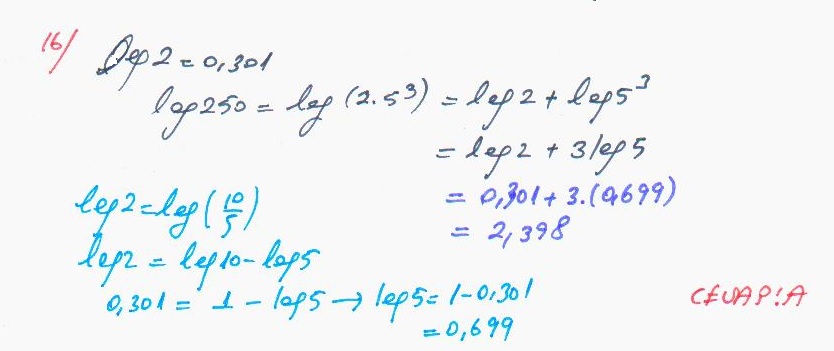 16/ log 2 = 0,301
log 250 = log (2.5³) = log 2 + log 5³
= log 2 + 3 log 5
= 0,301 + 3.(0,699)
= 2,398
log 2 = log (10/5)
log 2 = log 10 - log 5
0,301 = 1 - log 5 → log 5 = 1 - 0,301
= 0,699
CEVAP: A